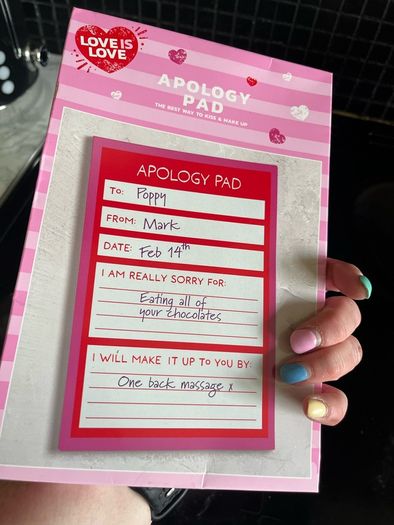 LOVE IS
LOVE
APOLOGY
PAD
THE BEST WAY TO KISS & MAKE UP
APOLOGY PAD
TO: Poppy
FROM: Mark
DATE: Feb 14th
I AM REALLY SORRY FOR:
Eating all of
your chocolates
I WILL MAKE IT UP TO YOU BY:
One back massage x